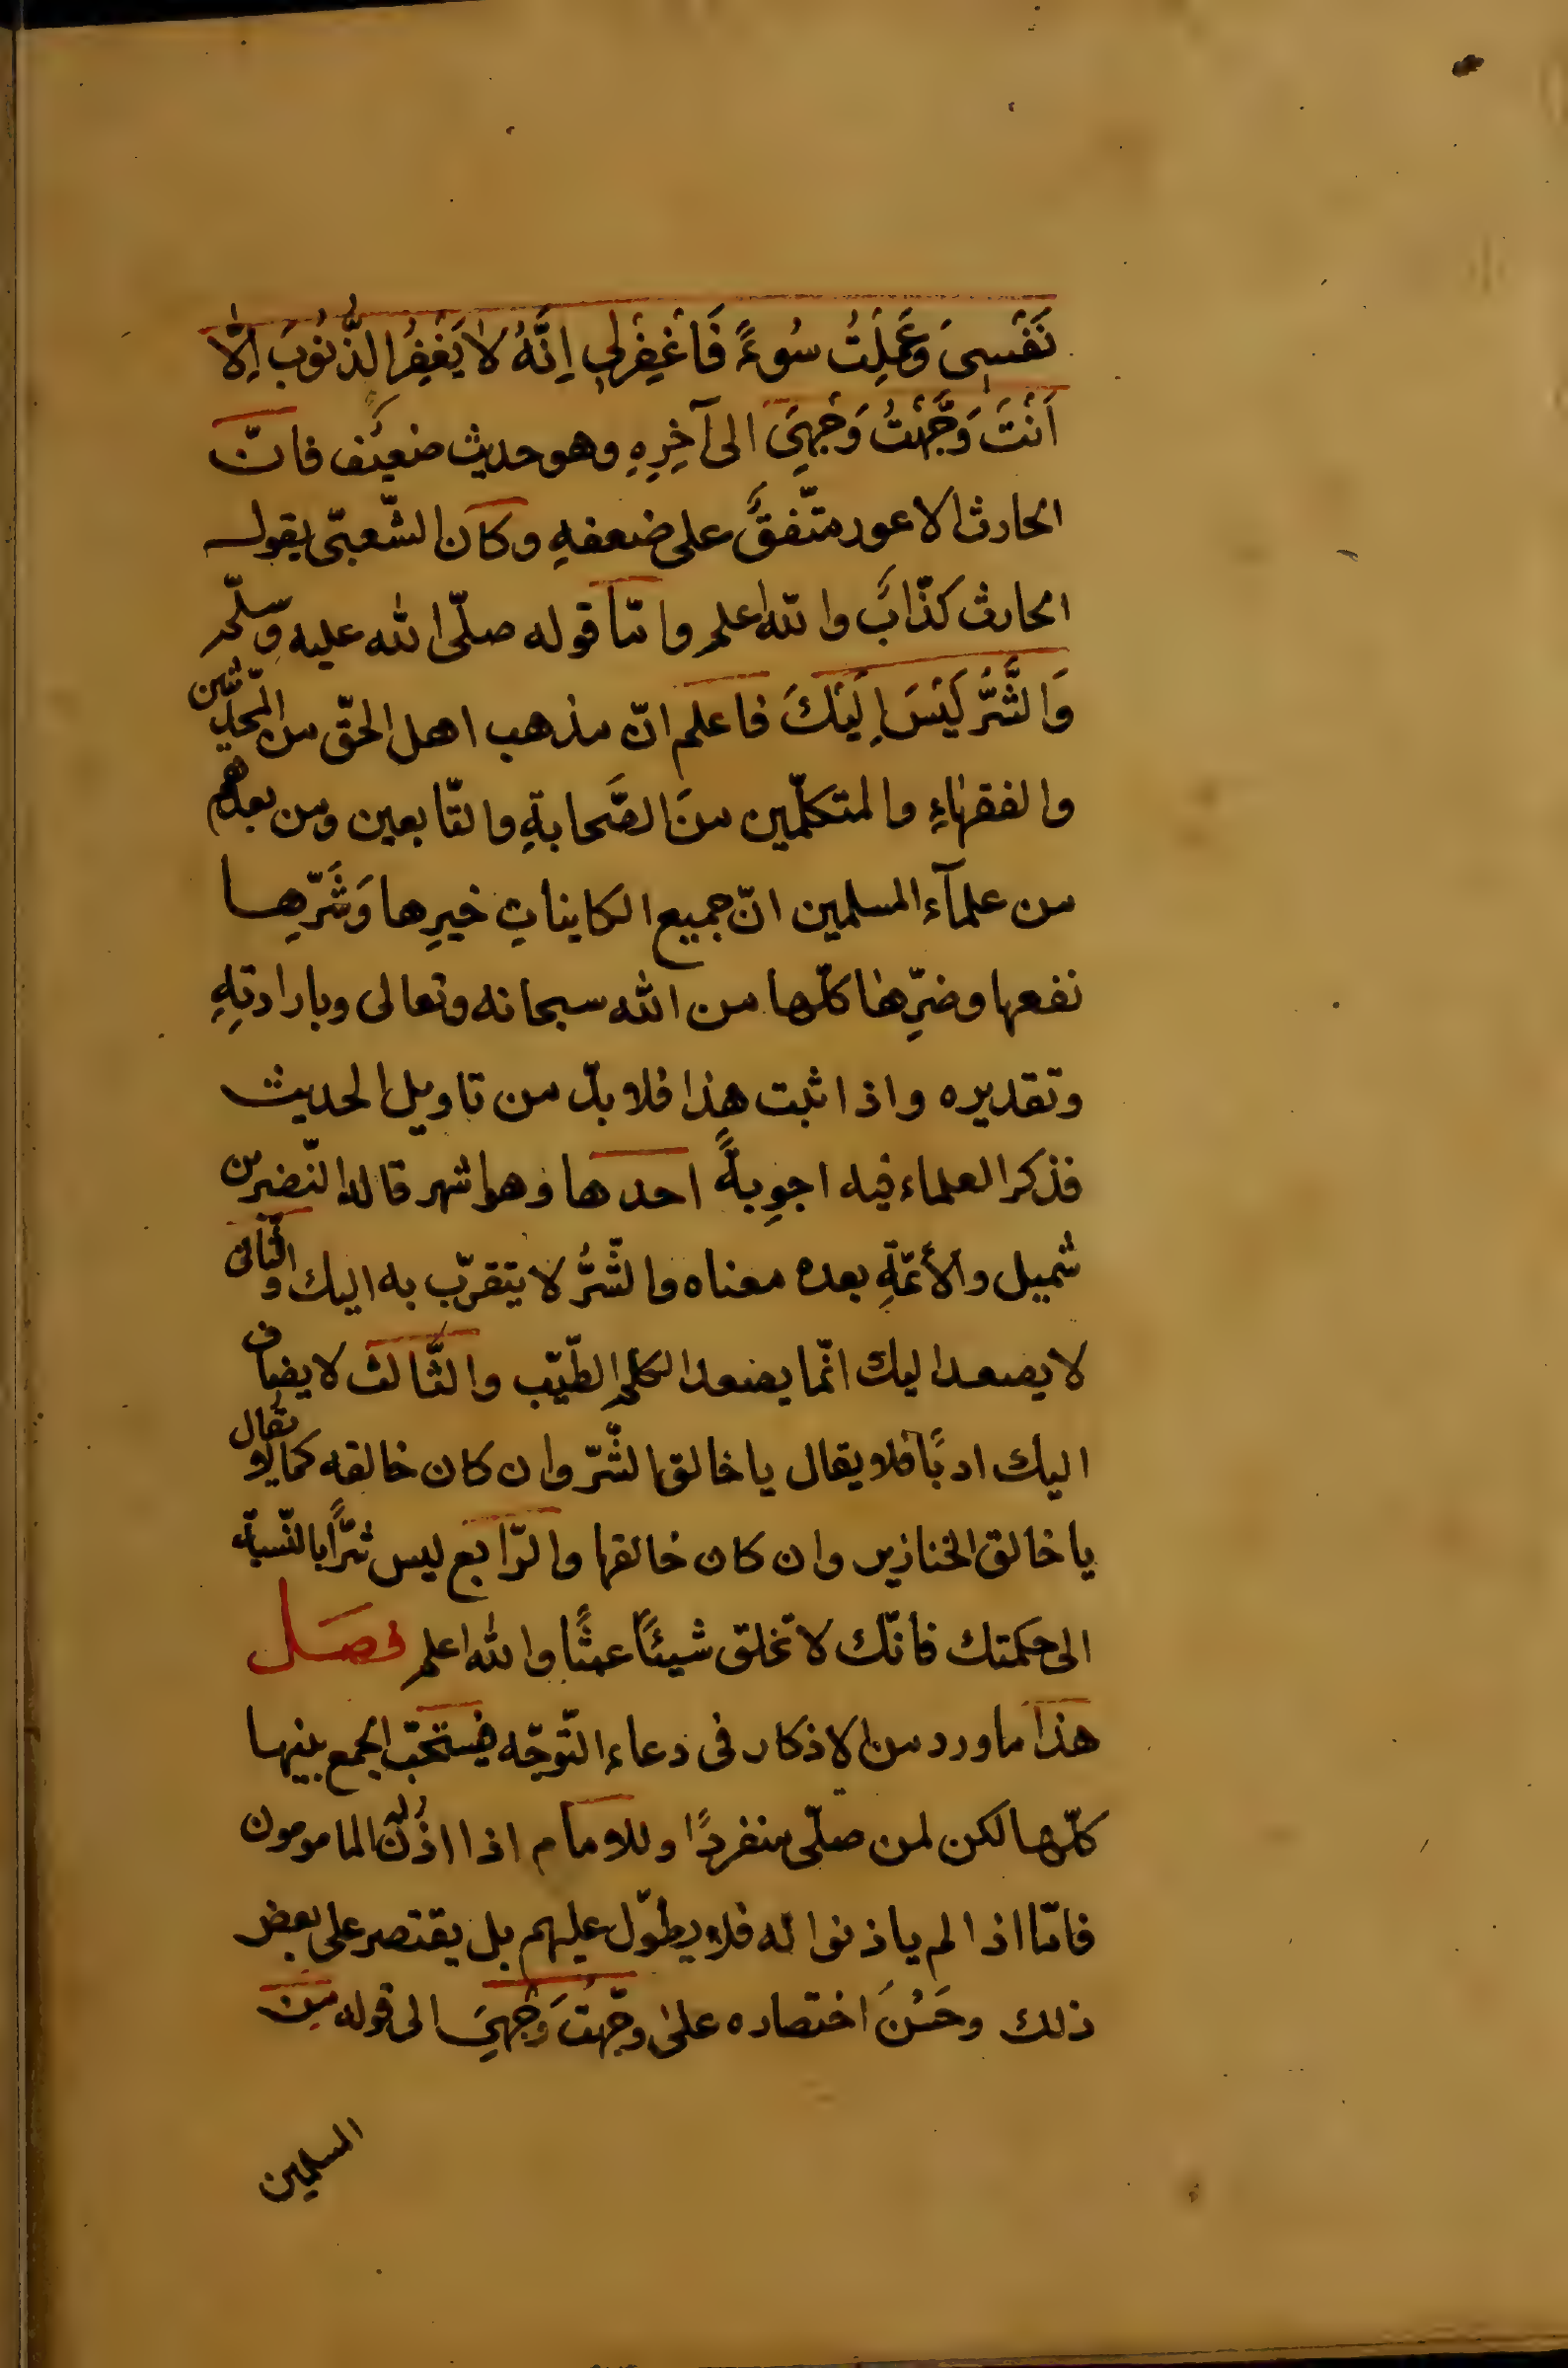 نَفْسِى وَعَمِلْتُ سُوءً فَاغْفِرْلِى اِنَّهُ لاٰيَغْفِرُ الذُّنُوبَ اِلّٰا
اَنْتَ وَجَّهْتُ وَجْهِىَ الى آخِرِهِ وهو حديث ضعيفٌ فانّ
الحارث الاعور متّفقٌ على ضعفهِ وكان الشّعبىّ يقول
الحارث كذّابٌ والله اعلم وامّا قوله صلّى الله عليه وسلّم
وَالشَّرُّ لَيْسَ اِلَيْكَ فاعلم انّ مذهب اهل الحقّ من المحدّثين
والفقهٰاءِ والمتكلّمين منَ الصَّحابةِ والتّابعين ومن بعدهم
من علمآء المسلمين انّ جميع الكايناتِ خيرِها وَشَرّهِا
نفعها وضرِّهٰا كلّها من الله سبحانه وتعالى وبارادتِهِ
وتقديره واذا ثبت هذا فلا بدّ من تاويل الحديث
فذكر العلماء فيه اجوِبةً احدها وهو اشهر قاله النّضر بن
شميل والأئمّةِ بعده معناه والشّرُّ لا يتقرّب به اليك والثّانى
لا يصعد اليك انّما يصعد الكلم الطيّب والثّالث لا يضاف
اليك ادبًا فلا يقال يا خالق الشّرّ وان كان خالقه كما لا يقال
يا خالق الخنازير وان كان خالقها والرّابع ليس شرًّا بالنّسبة
الى حكمتك فانّك لا تخلق شيئًا عبثًا والله اعلم فصل
هذا ما ورد من الاذكار فى دعاء التّوجّه فيستحبّ الجمع بينها
كلّها لكن لمن صلّى منفردًا وللامام اذا اذن له المامومون
فامّا اذا لم ياذنوا له فلا يطوّل عليهم بل يقتصر على بعض
ذلك وحَسُنَ اختصاره على وجّهتُ وَجْهِىَ الى قوله مِنَ
المسلمين